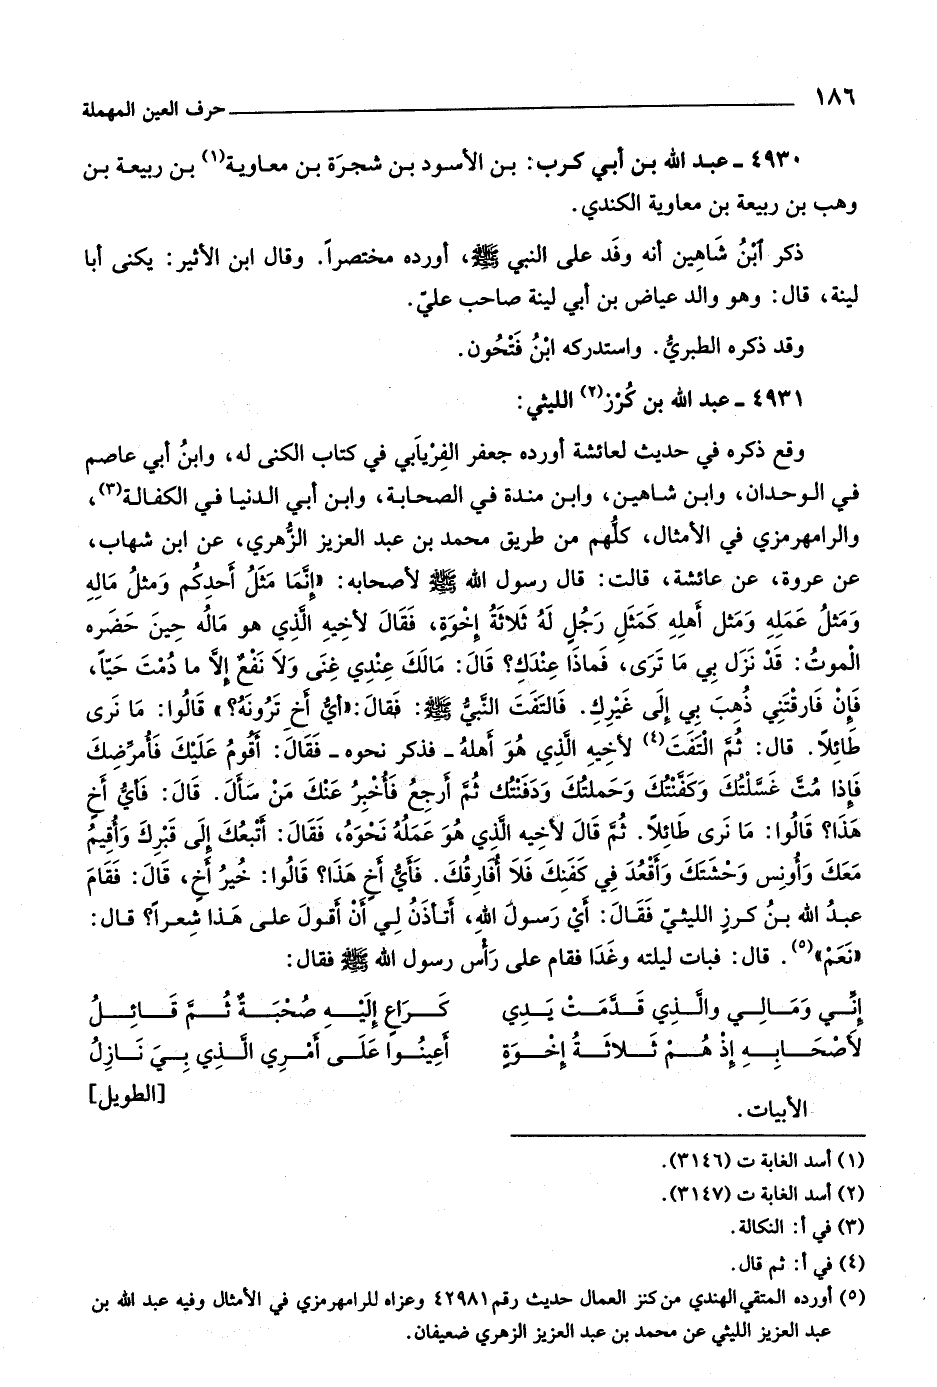 ١٨٦ حرف العين المهملة
٤٩٣٠ ـ عبد الله بن أبي كرب: بن الأسود بن شجرَة بن معاوية(١) بن ربيعة بن
وهب بن ربيعة بن معاوية الكندي.
ذكر ٱبْنُ شَاهِين أنه وفَد على النبي ﷺ، أورده مختصراً. وقال ابن الأثير: يكنى أبا
لينة، قال: وهو والد عياض بن أبي لينة صاحب عليّ.
وقد ذكره الطبريُّ. واستدركه ابْنُ فَتْحُون.
٤٩٣١ ـ عبد الله بن كُرْز(٢) الليثي:
وقع ذكره في حديث لعائشة أورده جعفر الفِرْيابي في كتاب الكنى له، وابنُ أبي عاصم
في الوحدان، وابن شاهين، وابن مندة في الصحابة، وابن أبي الدنيا في الكفالة(٣)،
والرامهرمزي في الأمثال، كلُّهم من طريق محمد بن عبد العزيز الزُّهري، عن ابن شهاب،
عن عروة، عن عائشة، قالت: قال رسول الله ﷺ لأصحابه: «إِنَّمَا مَثَلُ أَحدِكُم وَمثلُ مَالِهِ
وَمَثلُ عَمَلِهِ وَمَثل أَهلِهِ كَمَثَلِ رَجُلٍ لَهُ ثَلاثَةُ إِخْوَةٍ، فَقَالَ لأخِيهِ الَّذِي هو مَالُه حِينَ حَضَره
الْموتُ: قَدْ نَزَل بِي مَا تَرَى، فَماذَا عِنْدَك؟ قَالَ: مَالَكَ عِنْدِي غِنَى وَلاَ نَفْعٌ إِلاَّ ما دُمْتَ حَيّاً،
فَإِنْ فَارقْتَنِي ذُهِبَ بِي إِلَى غَيْرِك. فَالتَفَتَ النَّبِيُّ ﷺ: فقالَ: «أيُّ أَخٍ تَرُونَهُ؟» قَالُوا: مَا نَرى
طَائِلاً. قال: ثُمَّ الْتَفَتَ(٤) لأخيهِ الَّذِي هُوَ أَهلهُ ـ فذكر نحوه ـ فقَالَ: أَقُومُ عَلَيْكَ فَأُمرِّضِكَ
فَإِذا مُتَّ غَسَّلْتُكَ وَكَفَّنْتُكَ وَحَملتُكَ وَدَفَنْتُك ثُمَّ أَرجِعُ فَأُخْبِرُ عَنْكَ مَنْ سَأَلَ. قَالَ: فَأيُّ أَخٍ
هَذَا؟ قَالُوا: مَا نَرى طَائِلاً. ثُمَّ قَالَ لأخيه الَّذِي هُوَ عَمَلُهُ نَحْوَهُ، فَقَالَ: أَتْبعُكَ إِلَى قَبْرِكَ وَأُقِيمُ
مَعَكَ وَأُونِس وَحْشتَكَ وَأَقْعُدَ فِي كَفَنِكَ فَلاَ أُفَارِقُكَ. فَأَيُّ أَخٍ هَذَا؟ قَالُوا: خُيرُ أَخٍ، قَالَ: فَقَامَ
عبدُ الله بنُ كرزٍ الليثيّ فَقَالَ: أَيْ رَسولَ اللهِ، أَتأذَنُ لِي أَنْ أَقولَ على هَذا شِعراً؟ قال:
«نَعَمْ»(٥). قال: فبات ليلته وغَدَا فقام على رَأْس رسول الله ﷺ فقال:
إِنِّي وَمَالِي والَّذِي قَدَّمَتْ يَدِي كَرَاعٍ إِلَيْهِ صُحْبَةٌ ثُمَّ قَائِلُ
لأَصْحَابِهِ إِذْ هُمْ ثَلاثَةُ إِخْوَةٍ أَعِينُوا عَلَى أَمْرِي الَّذِي بِيَ نَازِلُ
[الطويل]
الأبيات.
(١) أسد الغابة ت (٣١٤٦).
(٢) أسد الغابة ت (٣١٤٧).
(٣) في أ: النكالة.
(٤) في أ: ثم قال.
(٥) أورده المتقي الهندي من كنز العمال حديث رقم ٤٢٩٨١ وعزاه للرامهرمزي في الأمثال وفيه عبد الله بن
عبد العزيز الليثي عن محمد بن عبد العزيز الزهري ضعيفان.